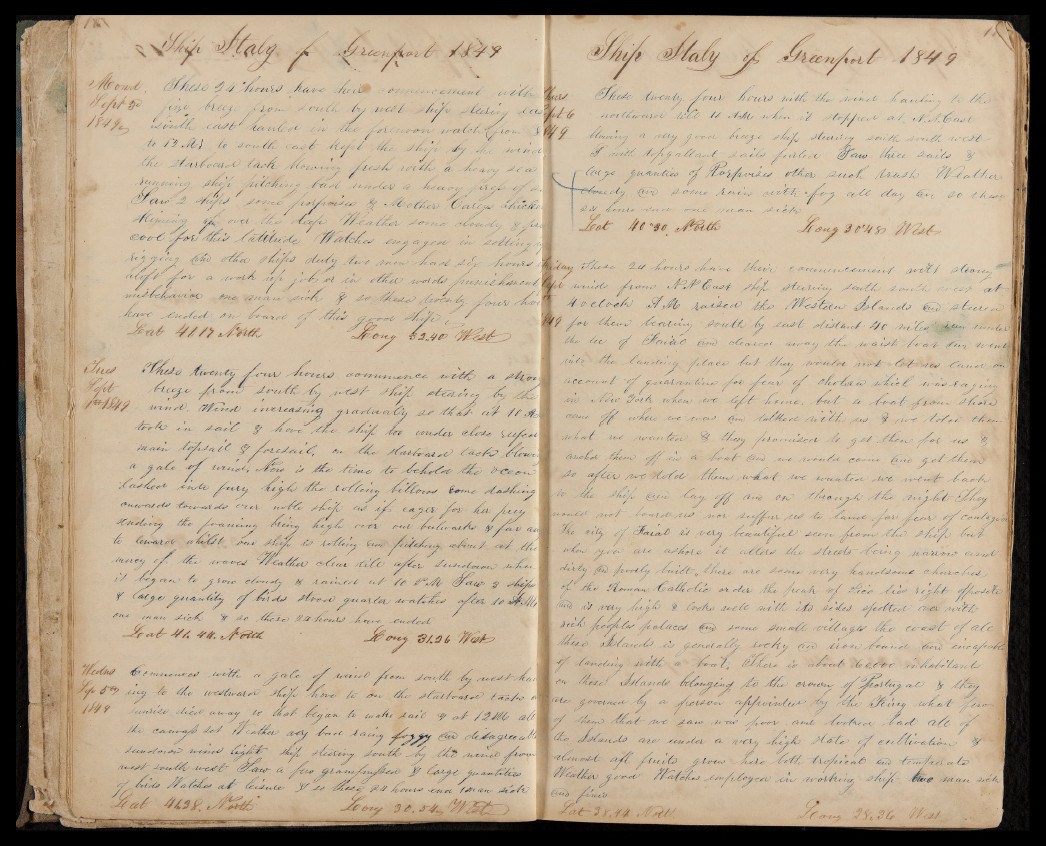 Ship Italy of Greenport 1849
Mond. Sept 3d 1849
These 24 hours have their commencement with
fine breeze from south by west ship stearing
south east hauled in the forenoon watch from
to 13 to south east kept the ship by the wind
the starboard tack blowing fresh with a heavy sea
running ship pitching bad under a heavy press of
Saw 2 ships some porpoises & Mother Careys chicken
skiming over the Weather some cloudy &
cool for this Latitude Watches engaged in setting
rigging & other ships duty two men had six hours
aloft for a work up job or in other words punishment
misbehavior one man sick & so these twenty four
have ended on board of this good ship
Lat 41.17 North Long 32.40 West
Tues Sept 4th 1849
These twenty four hours commence with a strong
breeze from south by west ship stearing by the
wind. Wind increasing gradually so that at 10
took in sail & hove the ship too under close reefed
main topsail & foresail, on the starboard tack blowing
a gale of wind, Now is the time to behold the ocean
lashed into fury high the rolling billows come dashing
onwards towards our noble ship as if eager for her prey
sending the foaming being high over our bulwarks & far
to leward whilst our ship is rolling & pitching about at the
mercy of the waves Weather clear till after sundown when
it began to grow cloudy & rained at 10 P.M Saw 3 ships
& large quantity of birds stood quarter watches after 10
one man sick & so these 24 hours have ended
Lat 41.44. North Long 31.26 West
Wednes Sep 5th 1849
Commences with a gale of wind from south by west
ing to the westward ship hove to on the starboard tack
sunrise died away so that began to make sail & at 12 M all
the canvass set Weather very bad raing foggy & disagreeable
sundown wind light ship stearing south by the wind from
west south west Saw a few grampusses & large quantities
of birds Watches at leisure & so these 24 hours end 1 man sick
Lat 41.38. North Long 30.54. West
Ship Italy of Greenport 1849
Thurs Sept 6 1849
These twenty four hours with the wind hauling to the
northward till 10 AM when it stopped at N.N.East
blowing a very good breeze ship stearing south south west
with topgallant sails furled Saw three sails &
large quanties of Porpoises other such trash Weather
cloudy & some rain with fog all day & so these
24 hours one man sick
Lat 40°30. North Long 30°48 West
These 24 hours have their commencement with strong
wind from N.N East ship stearing south south west at
4 oclock A M raised the Western Islands & steered
for them bearing south by east distant 40 miles run under
the lee of Faial & cleared away the waist boat & went
into the landing place but they would not let us land on
account of quarantine for fear of cholara which was raging
in New York when we left home. but a boat from shore
came off when we was & talked with us & we told them
what we wanted & they promised to get them for us &
anchor them off in a boat & we would come & get them
so after we told them what we wanted we went back
to the ship & lay off and on through the night They
would not board us nor suffer us to land for fear of contagion
The city of Faial is very beautiful seen from the ship but
when you are ashore it alters the streets being narrow and
dirty & poorly built, there are some very handsome churches
of the Roman Catholic order the peak of Pico lies right opposite
& is very high & looks well with its sides spotted over with
rich peoples palaces & some small villages the coast of all
these Islands is generally rocky and iron bound and incapable
of landing with a boat. There is about inhabitants
on these Islands belonging to the crown of Portugal & they
are governed by a person appointed by the King what few
of them that we saw was poor and looked bad all of
the Islands are under a very high state of cultivation &
almost all fruits grow here both tropical and temperate
Weather good Watches employed in working ship two man sick
& finis
Lat 38.44 North Long 28.36 West